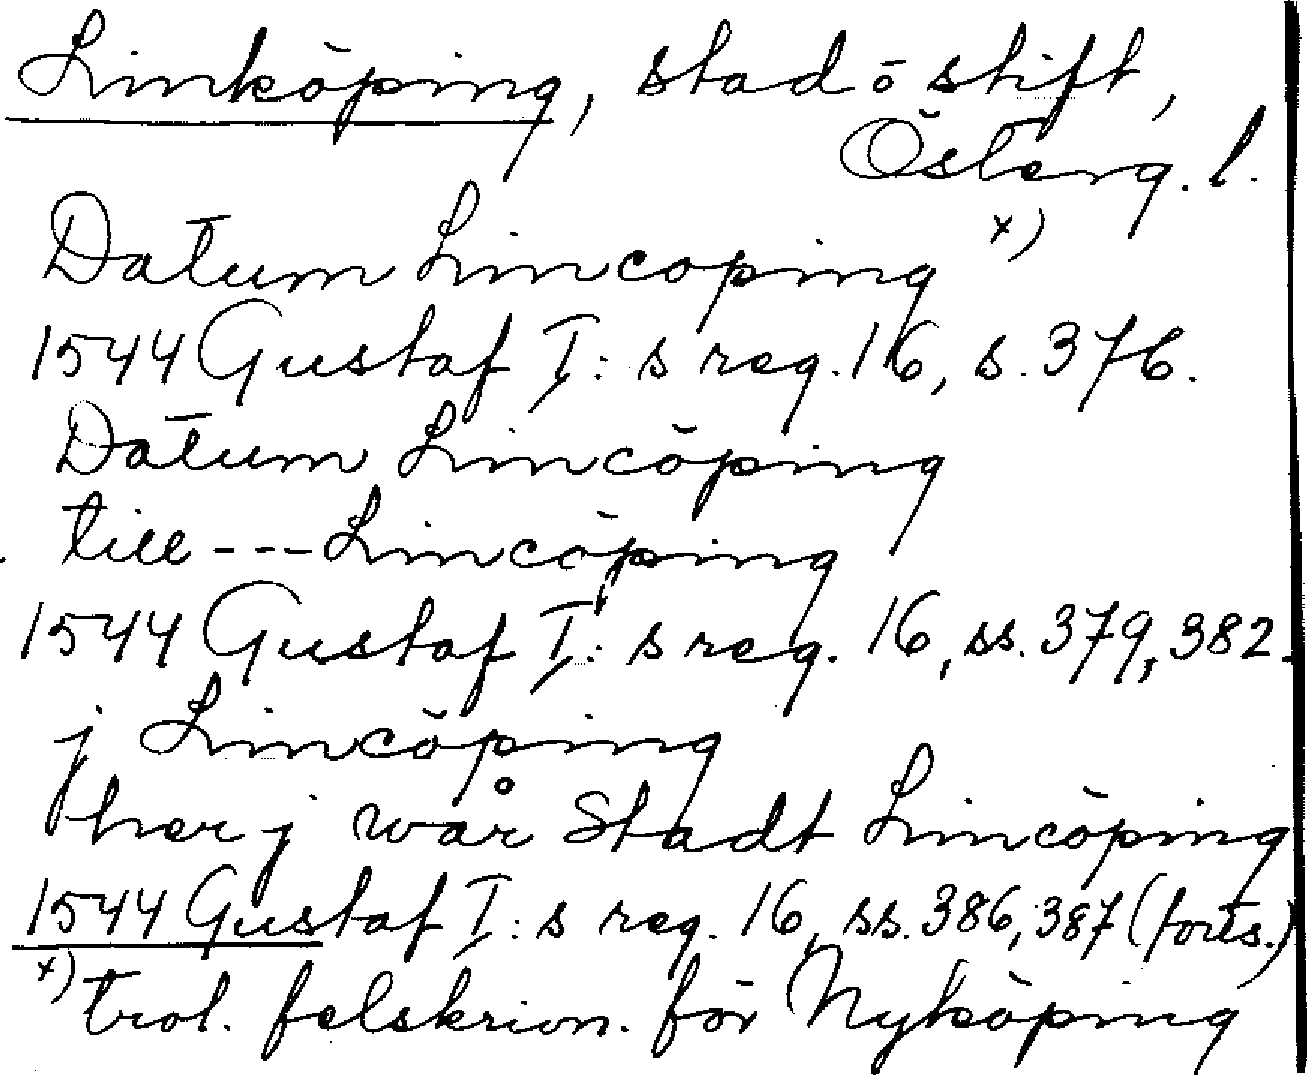 Linköping, stad ō stift,
Österg. l.
Datum Lincoping x)
1544 Gustaf I: s reg. 16, s. 376.
Datum Lincöping
till --- Lincöping
1544 Gustaf I: s reg. 16, ss. 379, 382.
j Lincöping
her j wår Stadt Lincöping
1544 Gustaf I: s reg. 16, ss. 386, 387 (forts.)
x) trol. felskrivn. för Nyköping